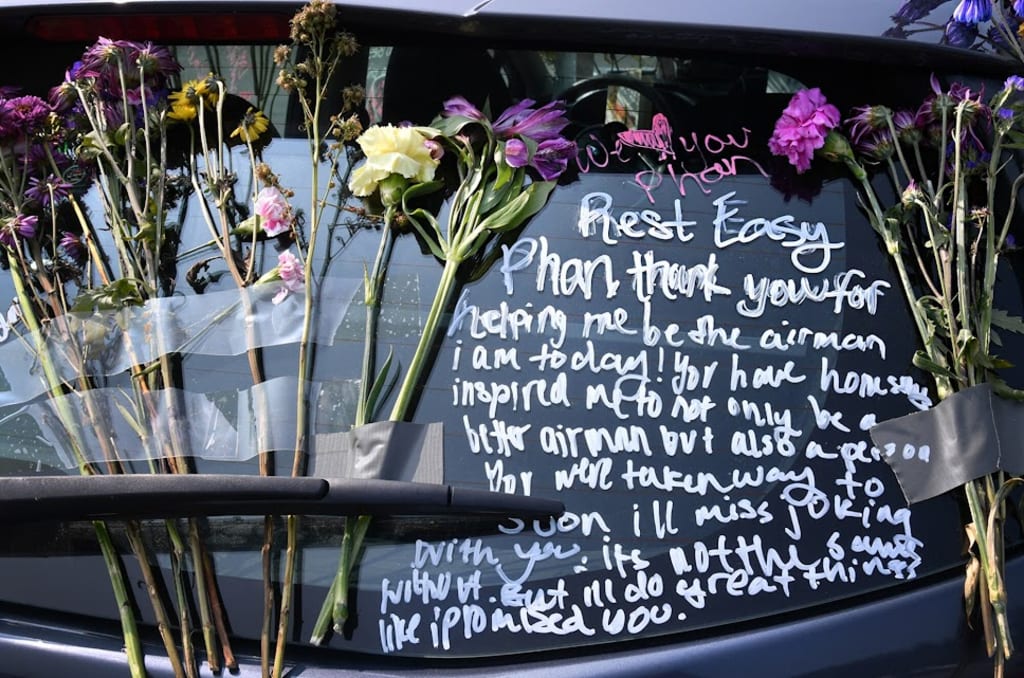 We you
Phan
Rest Easy
Phan thank you for
helping me be the airman
i am today! You have honestly
inspired me to not only be a
better airman but also a person
You were taken way to
soon ill miss joking
with you. its not the same
without. But ill do great things
like i promised you.